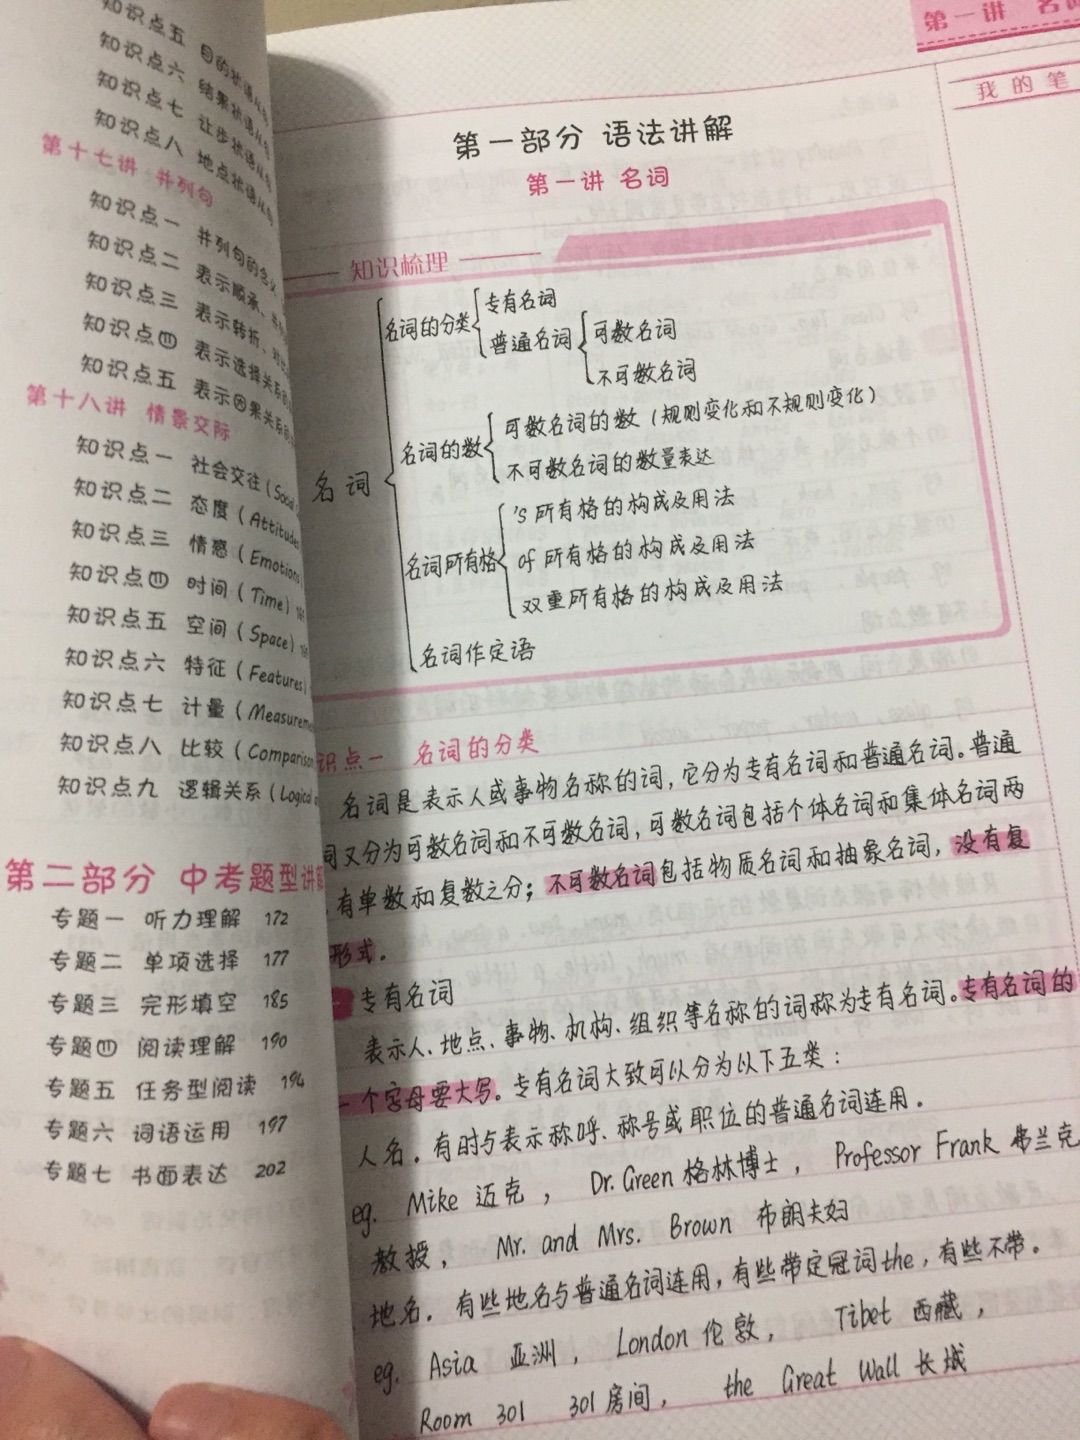 知识点五 目的状语从句
知识点六 结果状语从句
知识点七 让步状语从句
知识点八 地点状语从句
第十七讲 并列句
知识点一 并列句的含义
知识点二 表示顺承、
知识点三 表示转折、
知识点四 表示选择关系的
知识点五 表示因果关系的
第十八讲 情景交际
知识点一 社会交往(Social
知识点二 态度(Attitudes
知识点三 情感(Emotions
知识点四 时间(Time)
知识点五 空间(Space)
知识点六 特征(Features)
知识点七 计量(Measurem
知识点八 比较(Comparison
知识点九 逻辑关系(Logical
第二部分 中考题型讲解
专题一 听力理解 172
专题二 单项选择 177
专题三 完形填空 185
专题四 阅读理解 190
专题五 任务型阅读 194
专题六 词语运用 197
专题七 书面表达 202
第一讲 名词
我的笔
第一部分 语法讲解
第一讲 名词
知识梳理
名词
名词的分类
专有名词
普通名词
可数名词
不可数名词
名词的数
可数名词的数(规则变化和不规则变化)
不可数名词的数量表达
名词所有格
's所有格的构成及用法
of所有格的构成及用法
双重所有格的构成及用法
名词作定语
识点一 名词的分类
名词是表示人或事物名称的词,它分为专有名词和普通名词。普通
词又分为可数名词和不可数名词,可数名词包括个体名词和集体名词两
,有单数和复数之分;不可数名词包括物质名词和抽象名词,没有复
形式。
专有名词
表示人、地点、事物、机构、组织等名称的词称为专有名词。专有名词的
一个字母要大写。专有名词大致可以分为以下五类:
人名。有时与表示称呼、称号或职位的普通名词连用。
eg. Mike 迈克, Dr. Green 格林博士, Professor Frank 弗兰克
教授, Mr. and Mrs. Brown 布朗夫妇
地名。有些地名与普通名词连用,有些带定冠词the,有些不带。
eg. Asia 亚洲, London 伦敦, Tibet 西藏,
Room 301 301房间, the Great Wall 长城